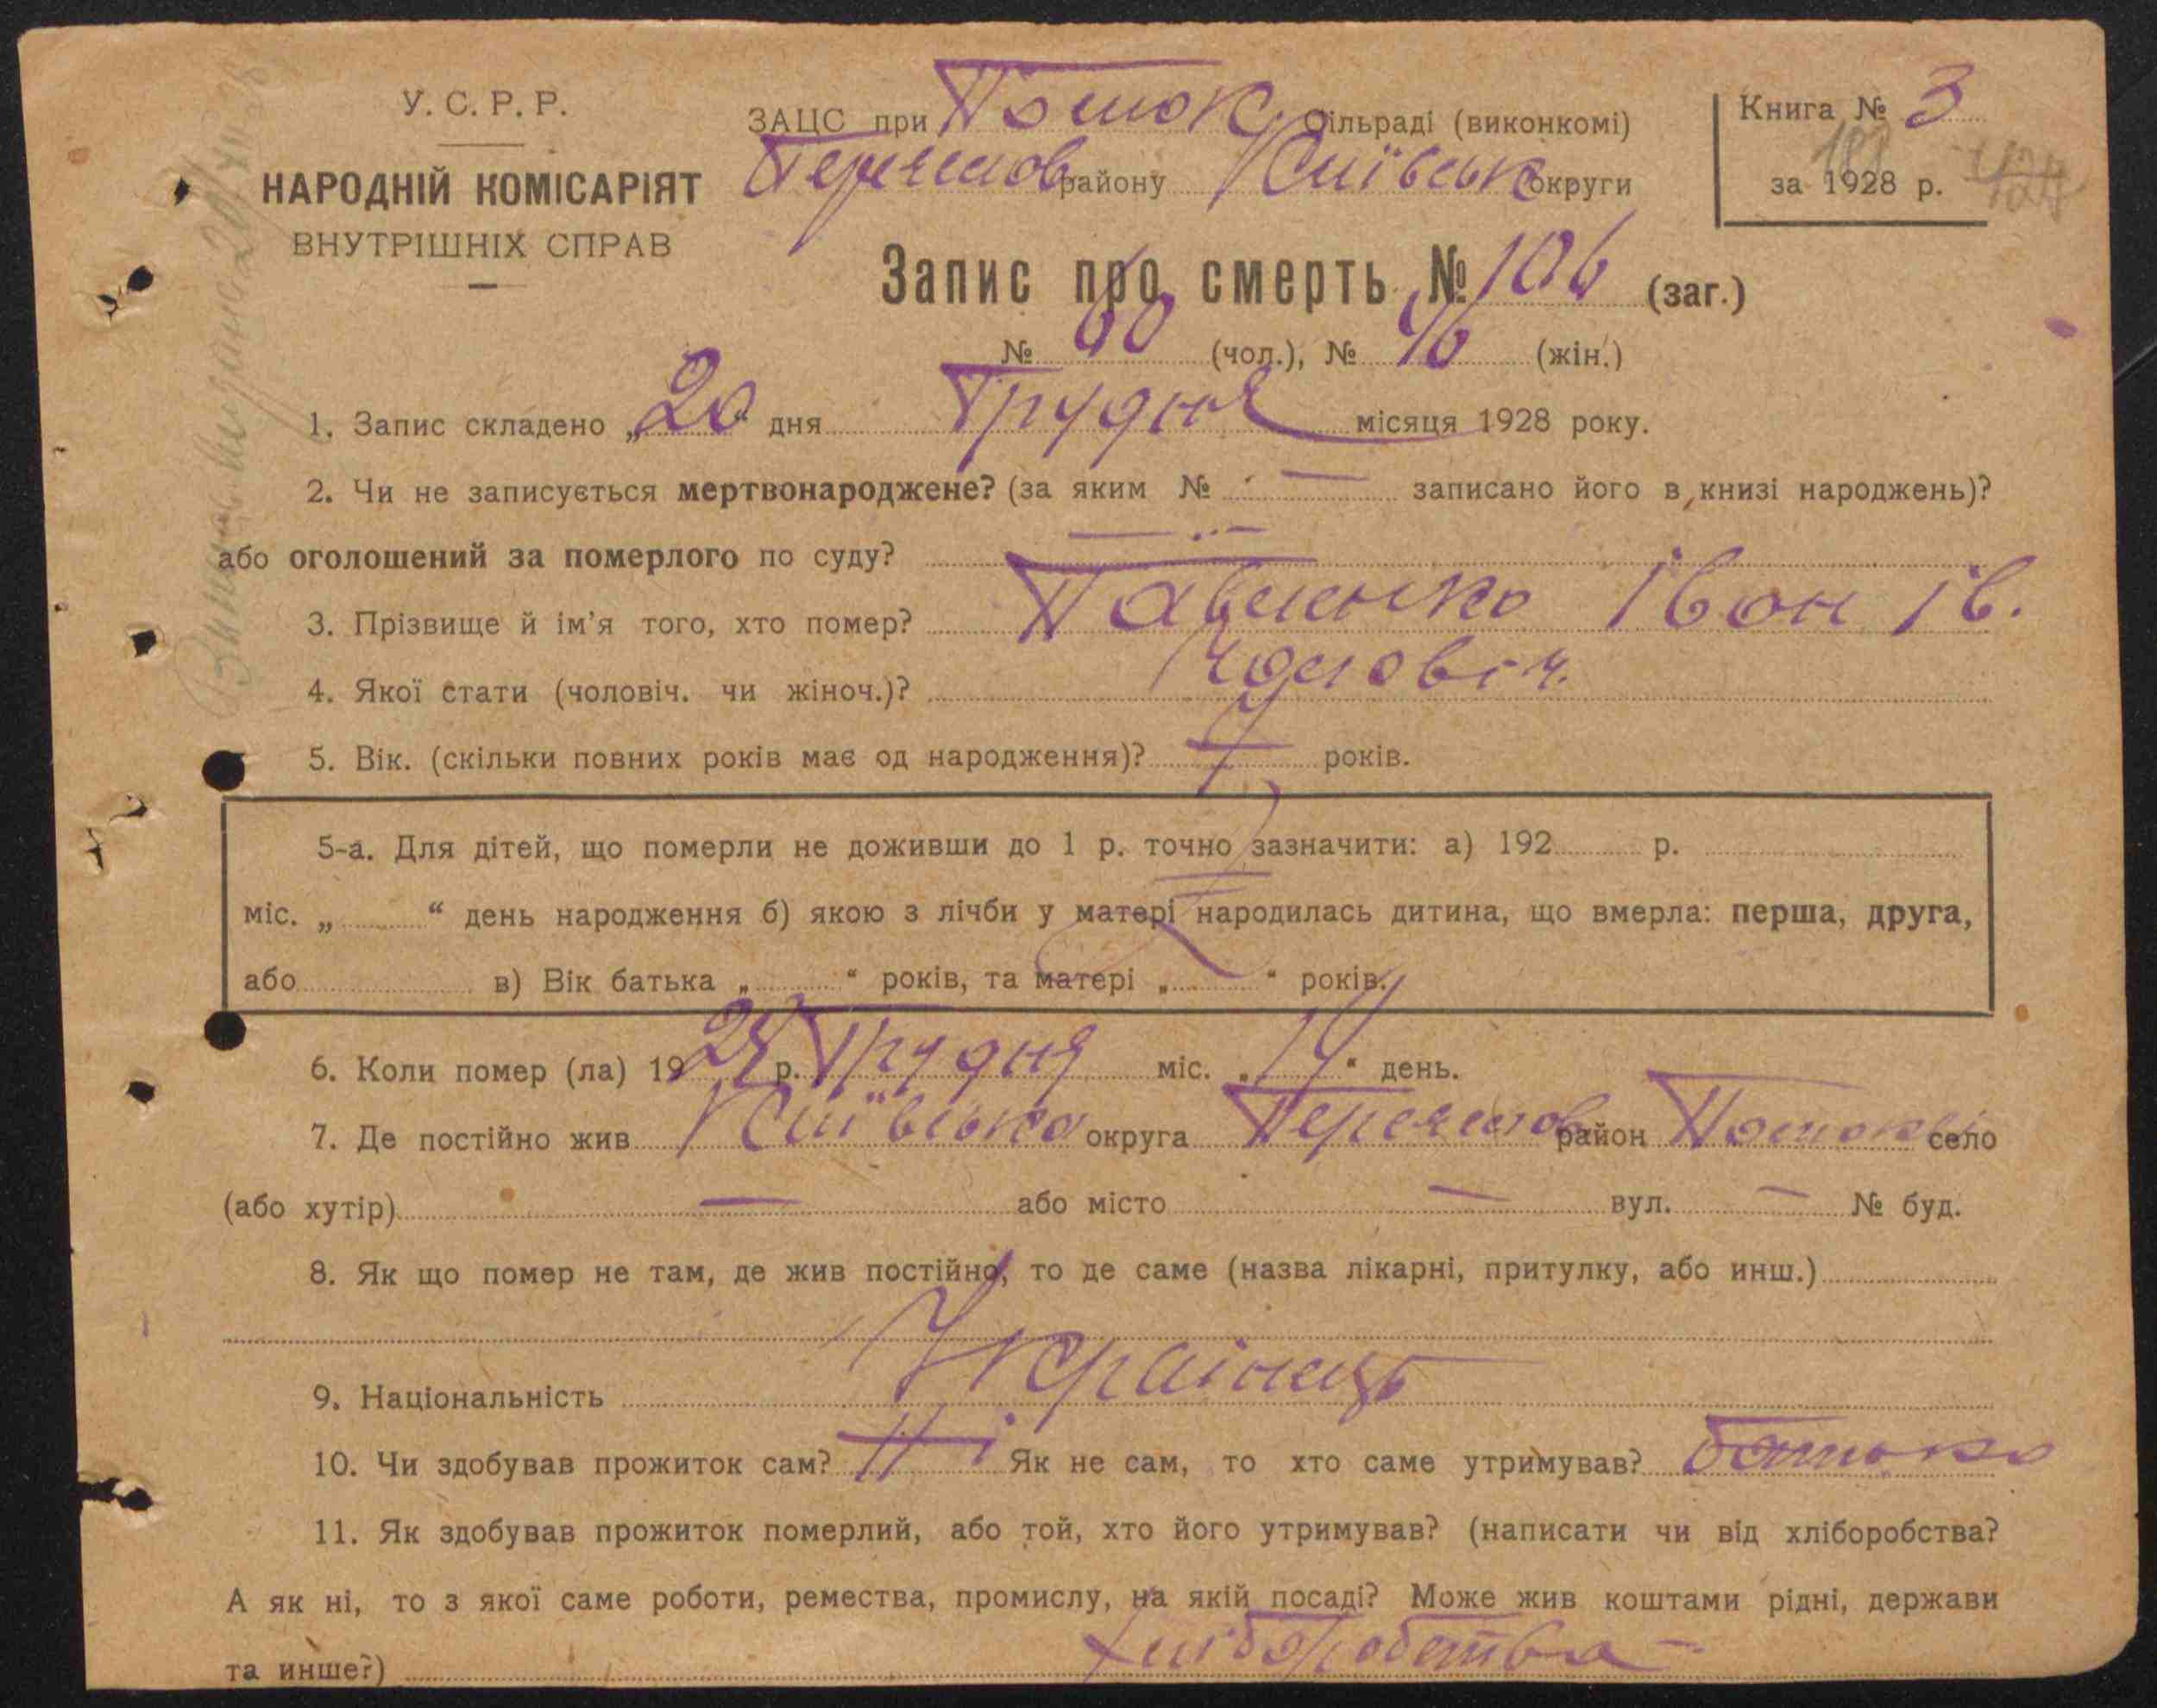 У. С. Р. Р.
НАРОДНІЙ КОМІСАРІЯТ
ВНУТРІШНІХ СПРАВ
ЗАЦС при Поток Сільраді (виконкомі)
Переяслов району Київськ округи
Книга № 3
за 1928 р.
Запис про смерть № 106 (заг.)
№ 60 (чол.), № 46 (жін.)
1. Запис складено „20“ дня Грудня місяця 1928 року.
2. Чи не записується мертвонароджене? (за яким № — записано його в книзі народжень)?
або оголошений за померлого по суду? —
3. Прізвище й ім'я того, хто помер? Павленко Іван Ів.
4. Якої статі (чоловіч. чи жіноч.)? Чоловіч.
5. Вік. (скільки повних років має од народження)? 7 років.
5-а. Для дітей, що померли не доживши до 1 р. точно зазначити: а) 192 р.
міс. „ “ день народження б) якою з лічби у матері народилась дитина, що вмерла: перша, друга,
або в) Вік батька „ “ років, та матері „ “ років.
6. Коли помер (ла) 1928 р. Грудня міс. „19“ день.
7. Де постійно жив Київська округа Переяслов район Потоки село
(або хутір) — або місто — вул. — № буд.
8. Як що помер не там, де жив постійно, то де саме (назва лікарні, притулку, або инш.)
9. Національність Українець
10. Чи здобував прожиток сам? Ні Як не сам, то хто саме утримував? Батько
11. Як здобував прожиток померлий, або той, хто його утримував? (написати чи від хліборобства?
А як ні, то з якої саме роботи, ремества, промислу, на якій посаді? Може жив коштами рідні, держави
та инше?) Хліборобства